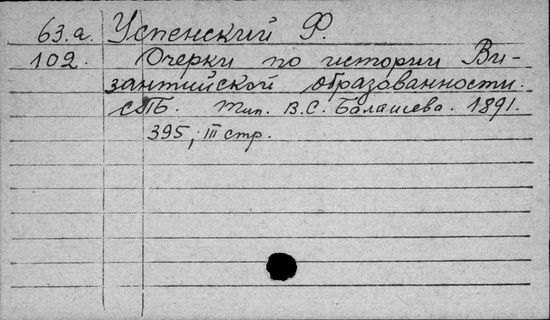 63.а. Успенский Ф.
102. Очерки по истории Ви-
зантийской образованности.
СПБ. Тип. В.С. Балашева. 1891.
395, III стр.